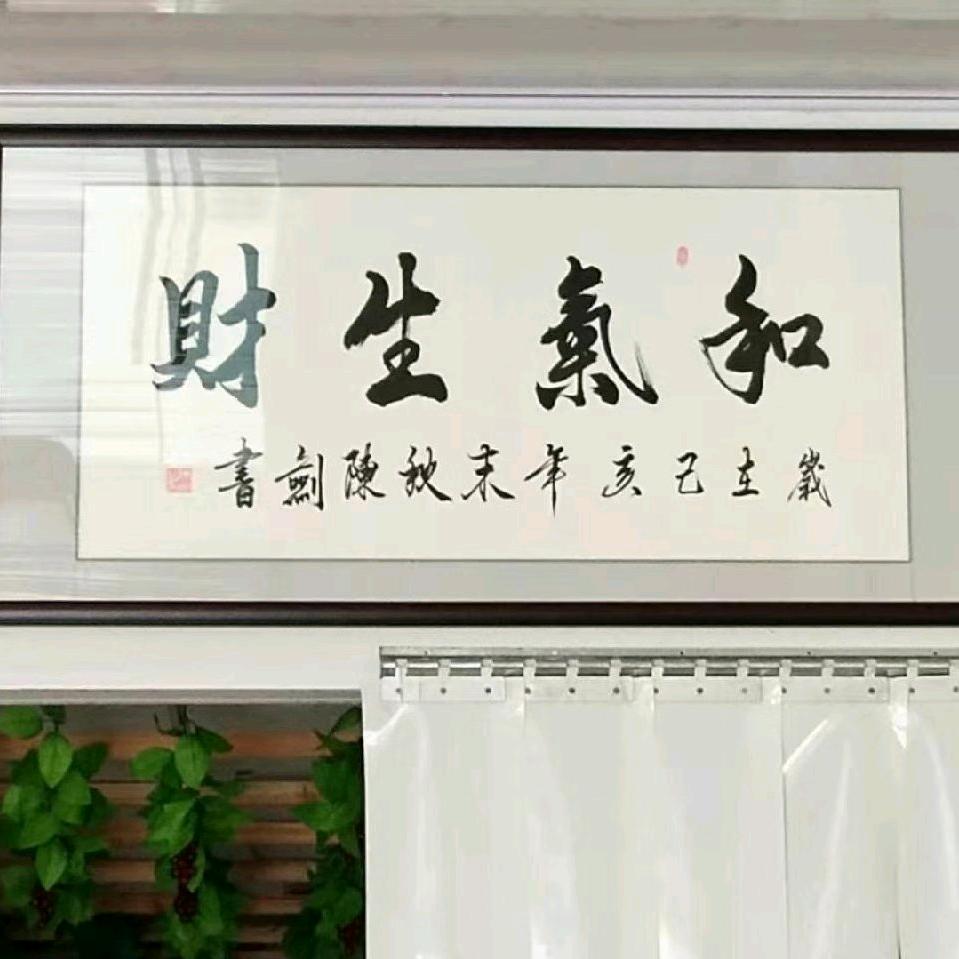 和氣生財
歲在己亥年末秋陳劍書